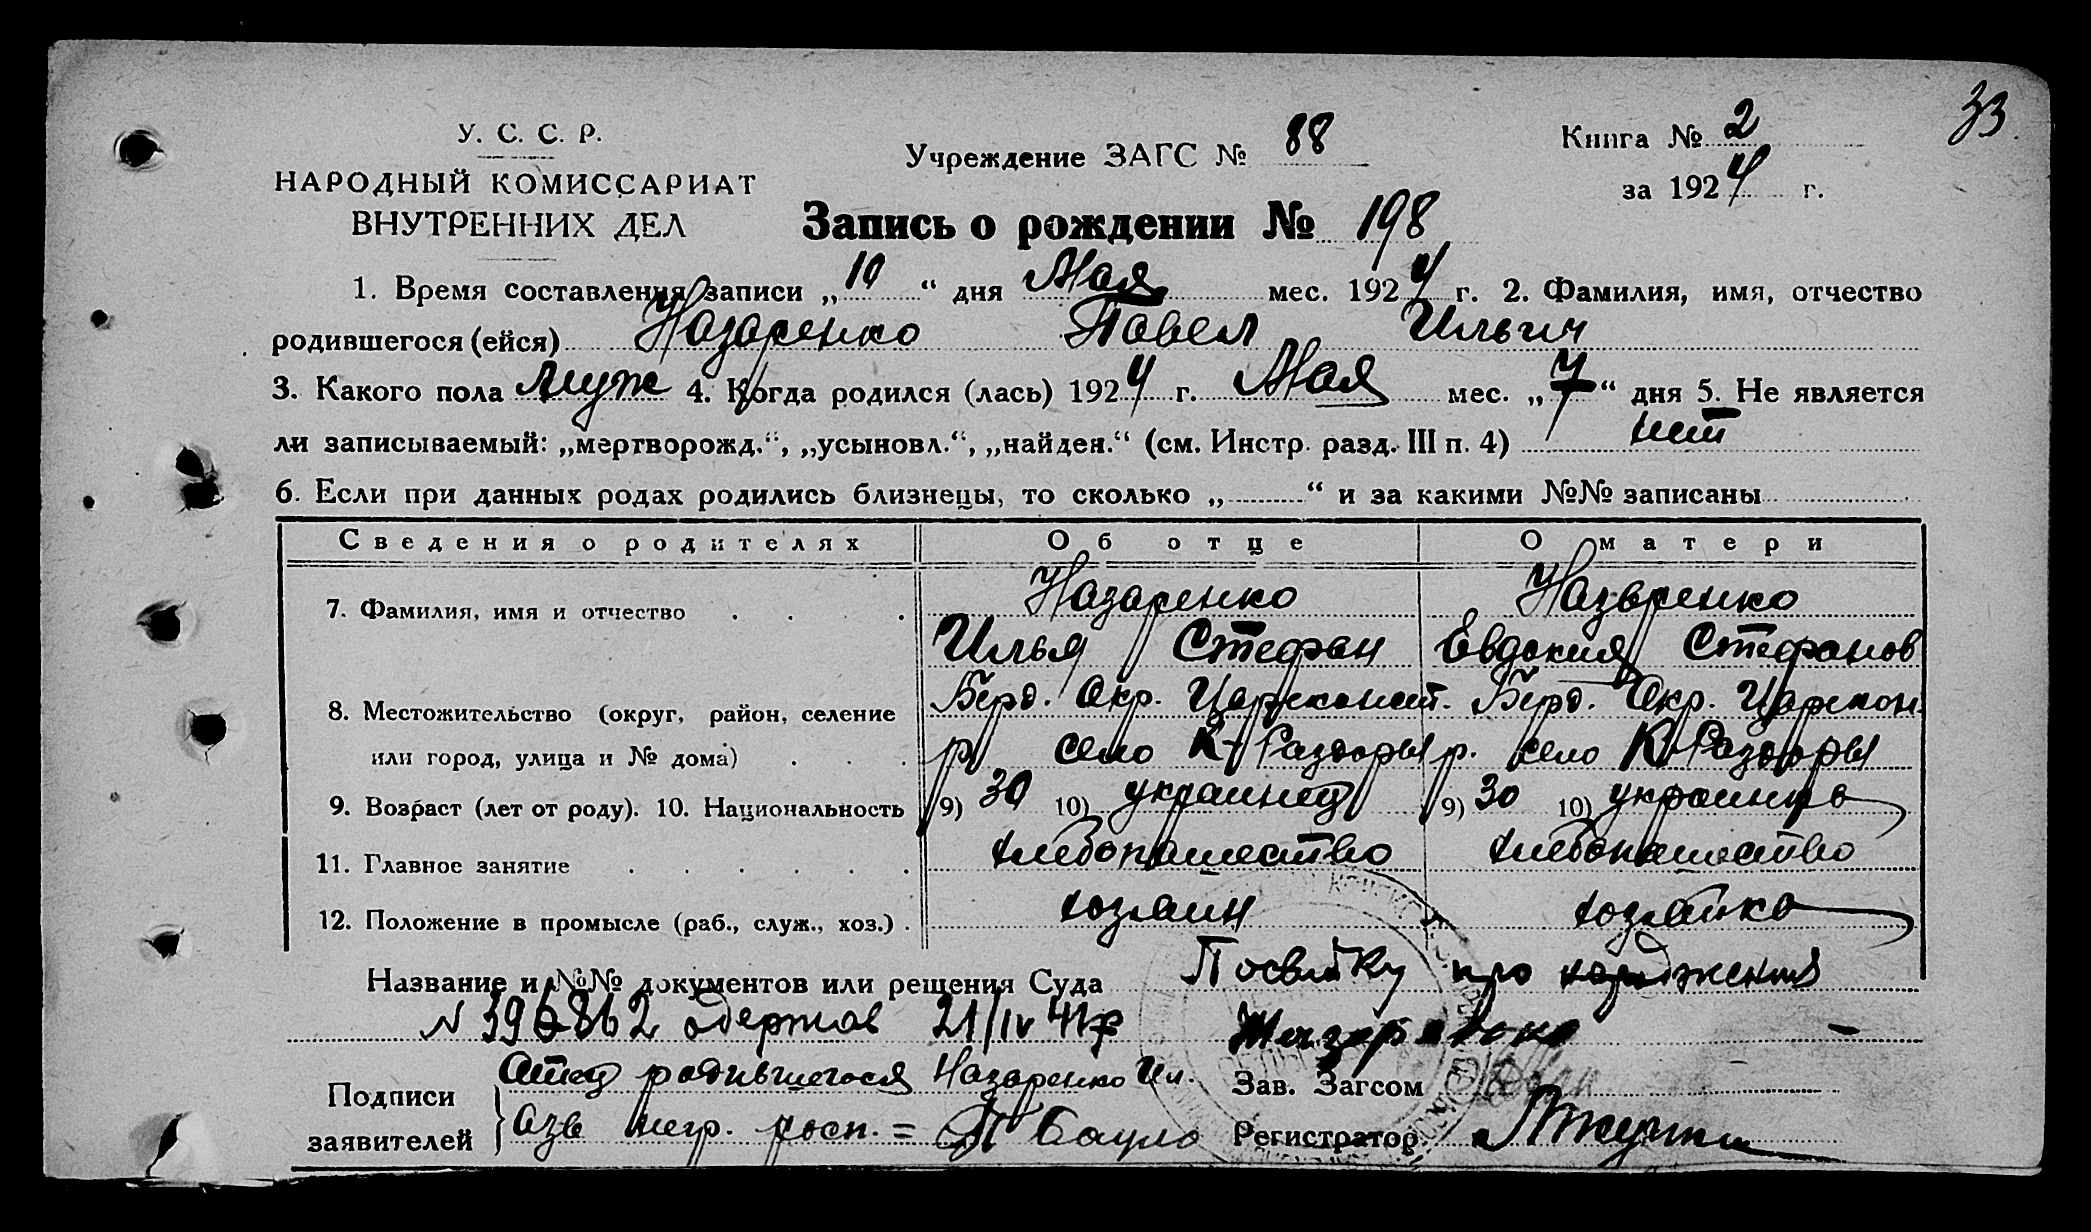 33
У. С. С. Р.
НАРОДНЫЙ КОМИССАРИАТ
ВНУТРЕННИХ ДЕЛ
Учреждение ЗАГС № 88
Книга № 2
за 1924 г.
Запись о рождении № 198
1. Время составления записи „10“ дня Мая мес. 1924 г. 2. Фамилия, имя, отчество
родившегося (ейся) Назаренко Павел Ильич
3. Какого пола муж 4. Когда родился (лась) 1924 г. Мая мес. „7“ дня 5. Не является
ли записываемый: „мертворожд.“, „усыновл.“, „найден.“ (см. Инстр. разд. III п. 4) нет
6. Если при данных родах родились близнецы, то сколько „ “ и за какими №№ записаны
Сведения о родителях Об отце О матери
7. Фамилия, имя и отчество Назаренко Назаренко
Илья Стефан Евдокия Стефанов
8. Местожительство (округ, район, селение Берд. Окр. Цареконст. Берд. Окр. Царекон.
или город, улица и № дома) р. село К-Раздоры р. село К-Раздоры
9. Возраст (лет от роду). 10. Национальность 9) 30 10) украинец 9) 30 10) украинка
11. Главное занятие хлебопашество хлебопашество
12. Положение в промысле (раб., служ., хоз.) хозяин хозяйка
Название и №№ документов или решения Суда Посвідку про народження
N 396862 одержав 21/IV 41р
Подписи
заявителей
Отец родившегося Назаренко Ил.
негр. росп. =
Зав. Загсом
Регистратор